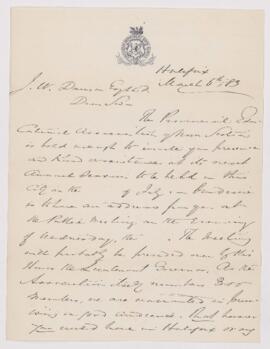 Halifax
March 6th, 83
J. W. Dawson Esq
Dear Sir
The Provincial Edu-
cational Association of Nova Scotia
is bold enough to invite your presence
and kind assistance at its next
Annual Session to be held in this
City on the of July, in
to have an address from you, at
the Public Meeting on the Evening
of Wednesday, the . The Meeting
will probably be presided over by His
Honor the Lieutenant Governor. As the
Association today numbers 300
Members, we are warranted in
a good audience. That honor
you have in Halifax